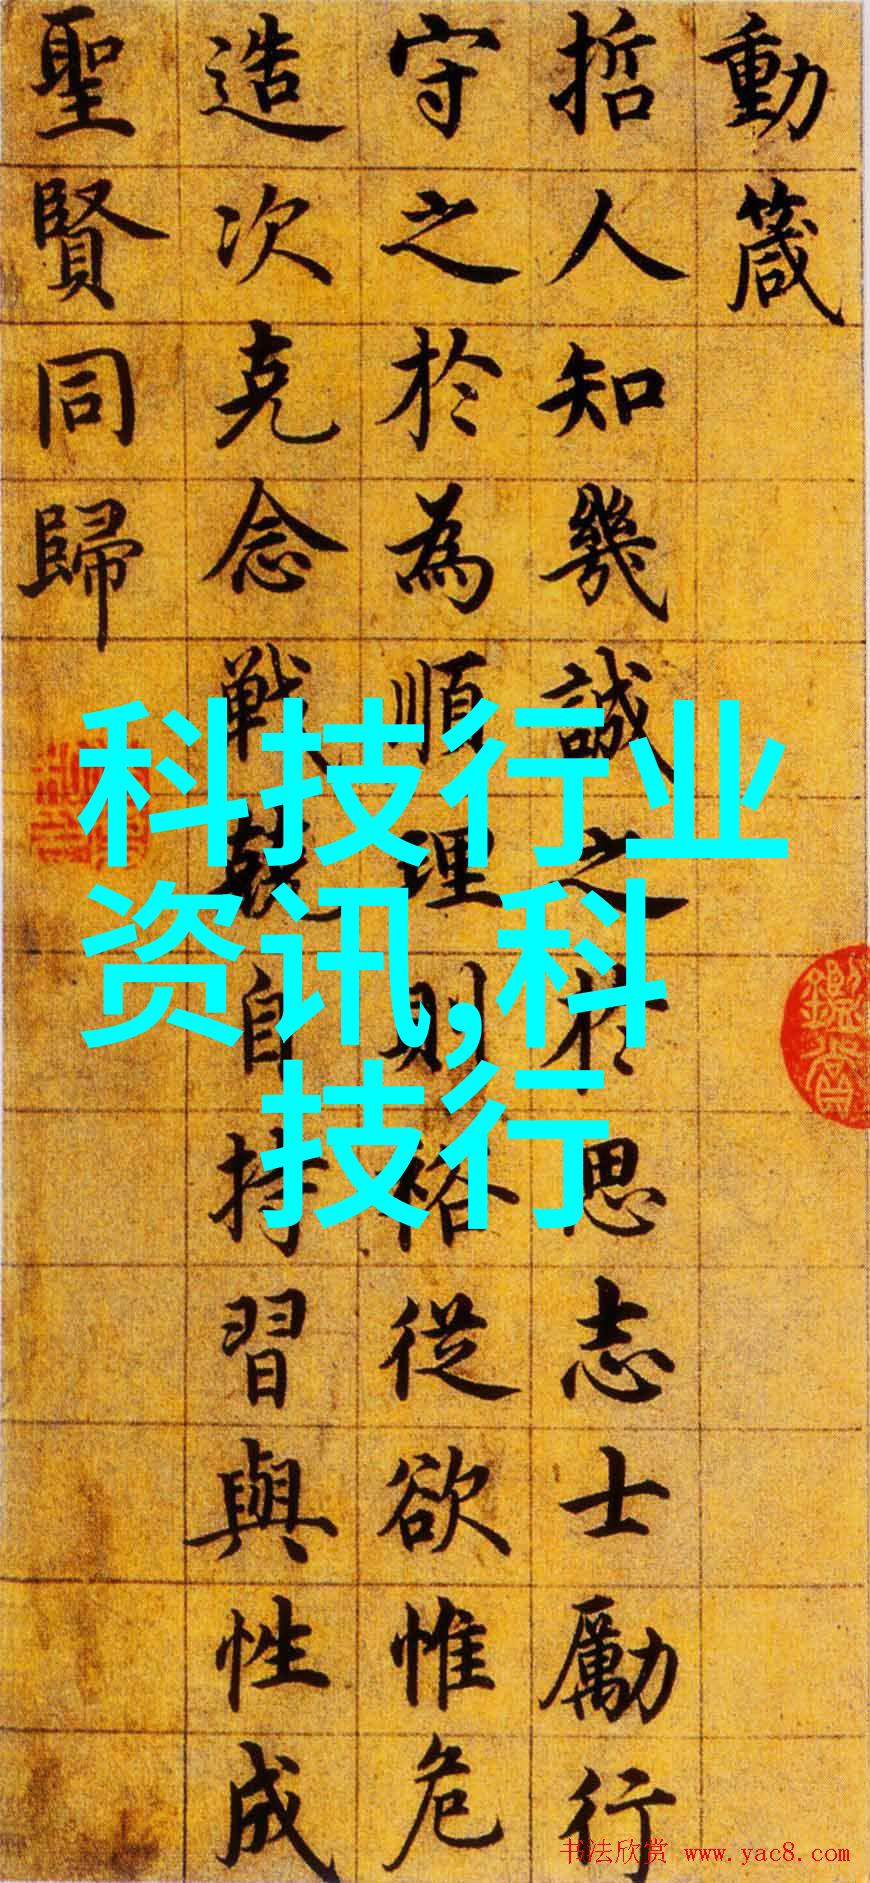 動箴
哲人知幾誠之於思志士勵行
守之於為順理則裕從欲惟危
造次克念戰兢自持習與性成
聖賢同歸
科技行业
资讯,科
技行
书法欣赏 www.yac8.com